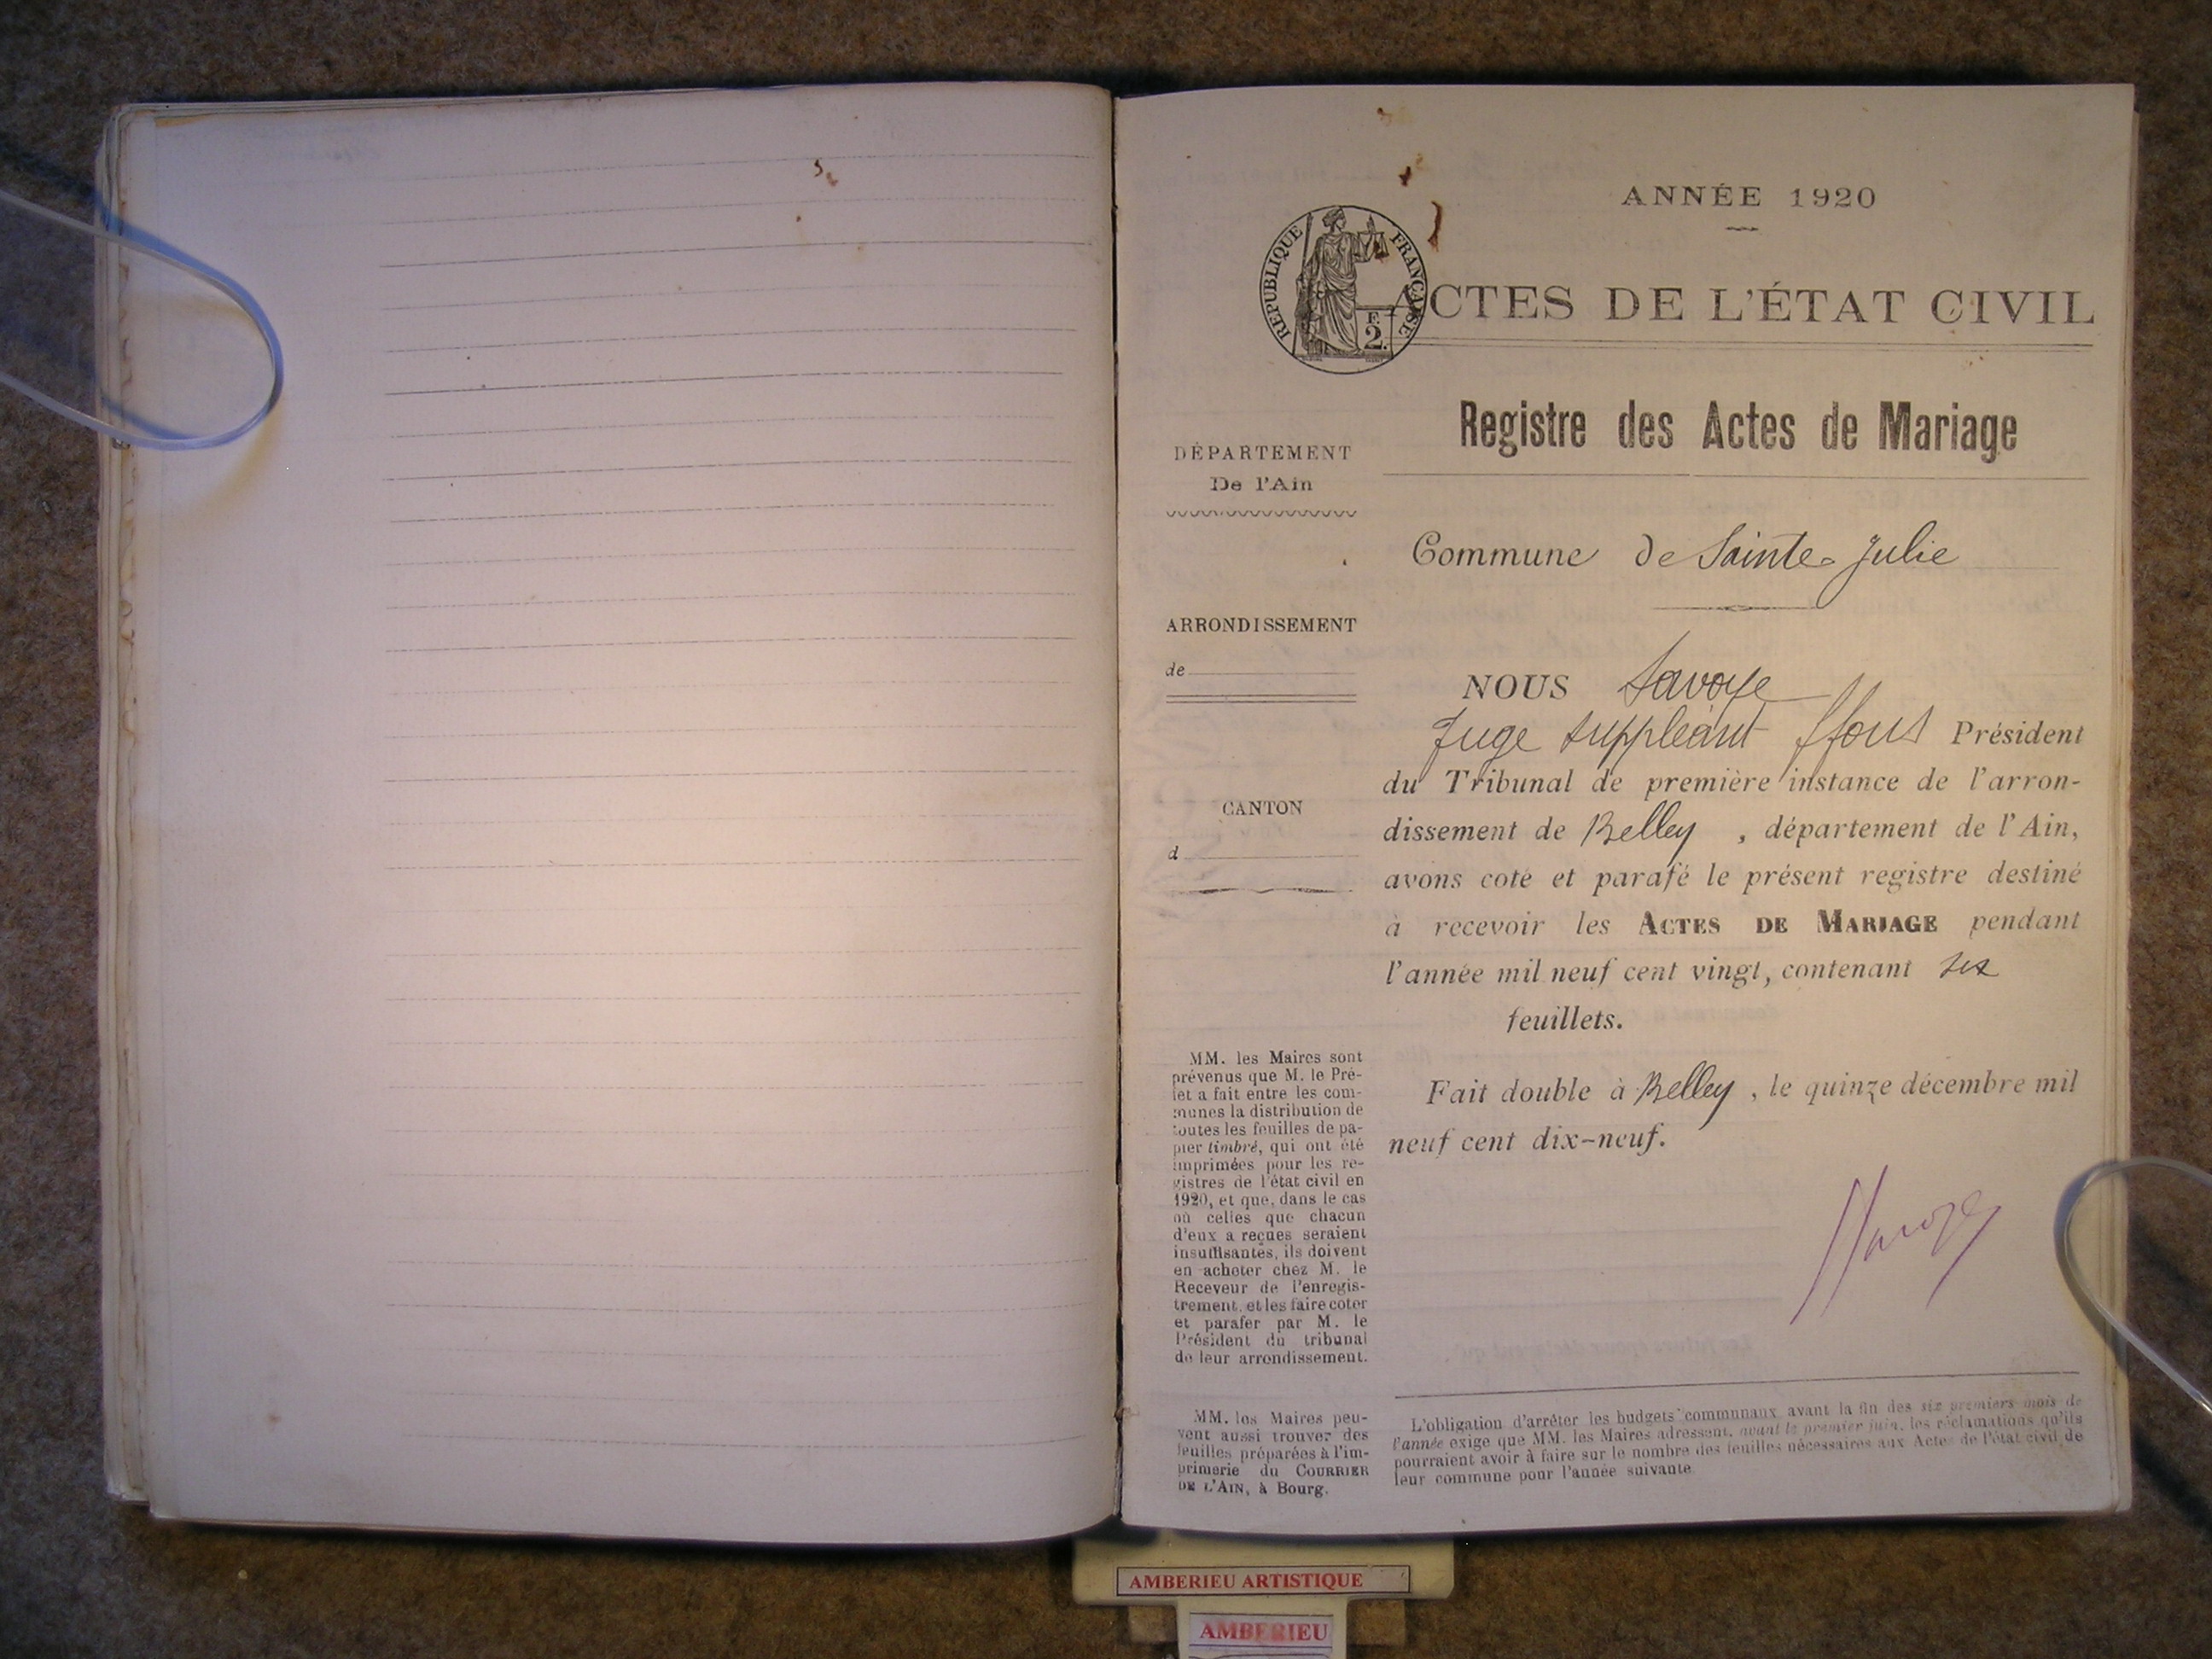 ANNÉE 1920
RÉPUBLIQUE FRANÇAISE
F.
2.
ACTES DE L'ÉTAT CIVIL
Registre des Actes de Mariage
DÉPARTEMENT
De l'Ain
Commune de Sainte-Julie
ARRONDISSEMENT
de
CANTON
d
NOUS Savoye
Juge suppléant ffons Président
du Tribunal de première instance de l'arron-
dissement de Belley, département de l'Ain,
avons coté et parafé le présent registre destiné
à recevoir les ACTES DE MARIAGE pendant
l'année mil neuf cent vingt, contenant six
feuillets.
Fait double à Belley, le quinze décembre mil
neuf cent dix-neuf.
Savoye
MM. les Maires sont
prévenus que M. le Pré-
fet a fait entre les com-
munes la distribution de
toutes les feuilles de pa-
pier timbré, qui ont été
imprimées pour les re-
gistres de l'état civil en
1920, et que, dans le cas
où celles que chacun
d'eux a reçues seraient
insuffisantes, ils doivent
en acheter chez M. le
Receveur de l'enregis-
trement, et les faire coter
et parafer par M. le
Président du tribunal
de leur arrondissement.
MM. les Maires peu-
vent aussi trouver des
feuilles préparées à l'im-
primerie du COURRIER
DE L'AIN, à Bourg.
L'obligation d'arrêter les budgets communaux avant la fin des six premiers mois de
l'année exige que MM. les Maires adressent, avant le premier juin, les réclamations qu'ils
pourraient avoir à faire sur le nombre des feuilles nécessaires aux Actes de l'état civil de
leur commune pour l'année suivante.
AMBERIEU ARTISTIQUE
AMBERIEU